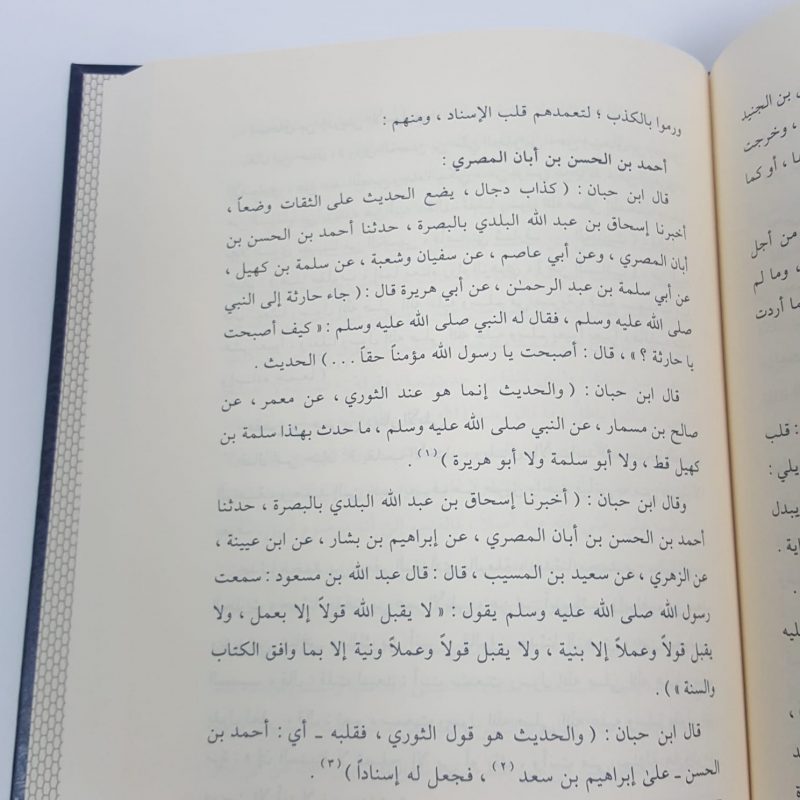 ، بن الجنيد
، وخرجت
ما ، أو كما
من أجل
، وما لم
ما أردت
: قلب
يلي :
يبدل
اية .
.
ليه
،
ورموا بالكذب ؛ لتعمدهم قلب الإسناد ، ومنهم :
أحمد بن الحسن بن أبان المصري :
قال ابن حبان : ( كذاب دجال ، يضع الحديث على الثقات وضعاً ،
أخبرنا إسحاق بن عبد الله البلدي بالبصرة ، حدثنا أحمد بن الحسن بن
أبان المصري ، وعن أبي عاصم ، عن سفيان وشعبة ، عن سلمة بن كهيل ،
عن أبي سلمة بن عبد الرحمـٰن ، عن أبي هريرة قال : ( جاء حارثة إلى النبي
صلى الله عليه وسلم ، فقال له النبي صلى الله عليه وسلم : « كيف أصبحت
يا حارثة ؟ » ، قال : أصبحت يا رسول الله مؤمناً حقاً . . . ) الحديث .
قال ابن حبان : ( والحديث إنما هو عند الثوري ، عن معمر ، عن
صالح بن مسمار ، عن النبي صلى الله عليه وسلم ، ما حدث بهـٰذا سلمة بن
كهيل قط ، ولا أبو سلمة ولا أبو هريرة )(١) .
وقال ابن حبان : ( أخبرنا إسحاق بن عبد الله البلدي بالبصرة ، حدثنا
أحمد بن الحسن بن أبان المصري ، عن إبراهيم بن بشار ، عن ابن عيينة ،
عن الزهري ، عن سعيد بن المسيب ، قال : قال عبد الله بن مسعود : سمعت
رسول الله صلى الله عليه وسلم يقول : « لا يقبل الله قولاً إلا بعمل ، ولا
يقبل قولاً وعملاً إلا بنية ، ولا يقبل قولاً وعملاً ونية إلا بما وافق الكتاب
والسنة » ) .
قال ابن حبان : ( والحديث هو قول الثوري ، فقلبه ـ أي : أحمد بن
الحسن ـ علىٰ إبراهيم بن سعد(٢) ، فجعل له إسناداً )(٣) .